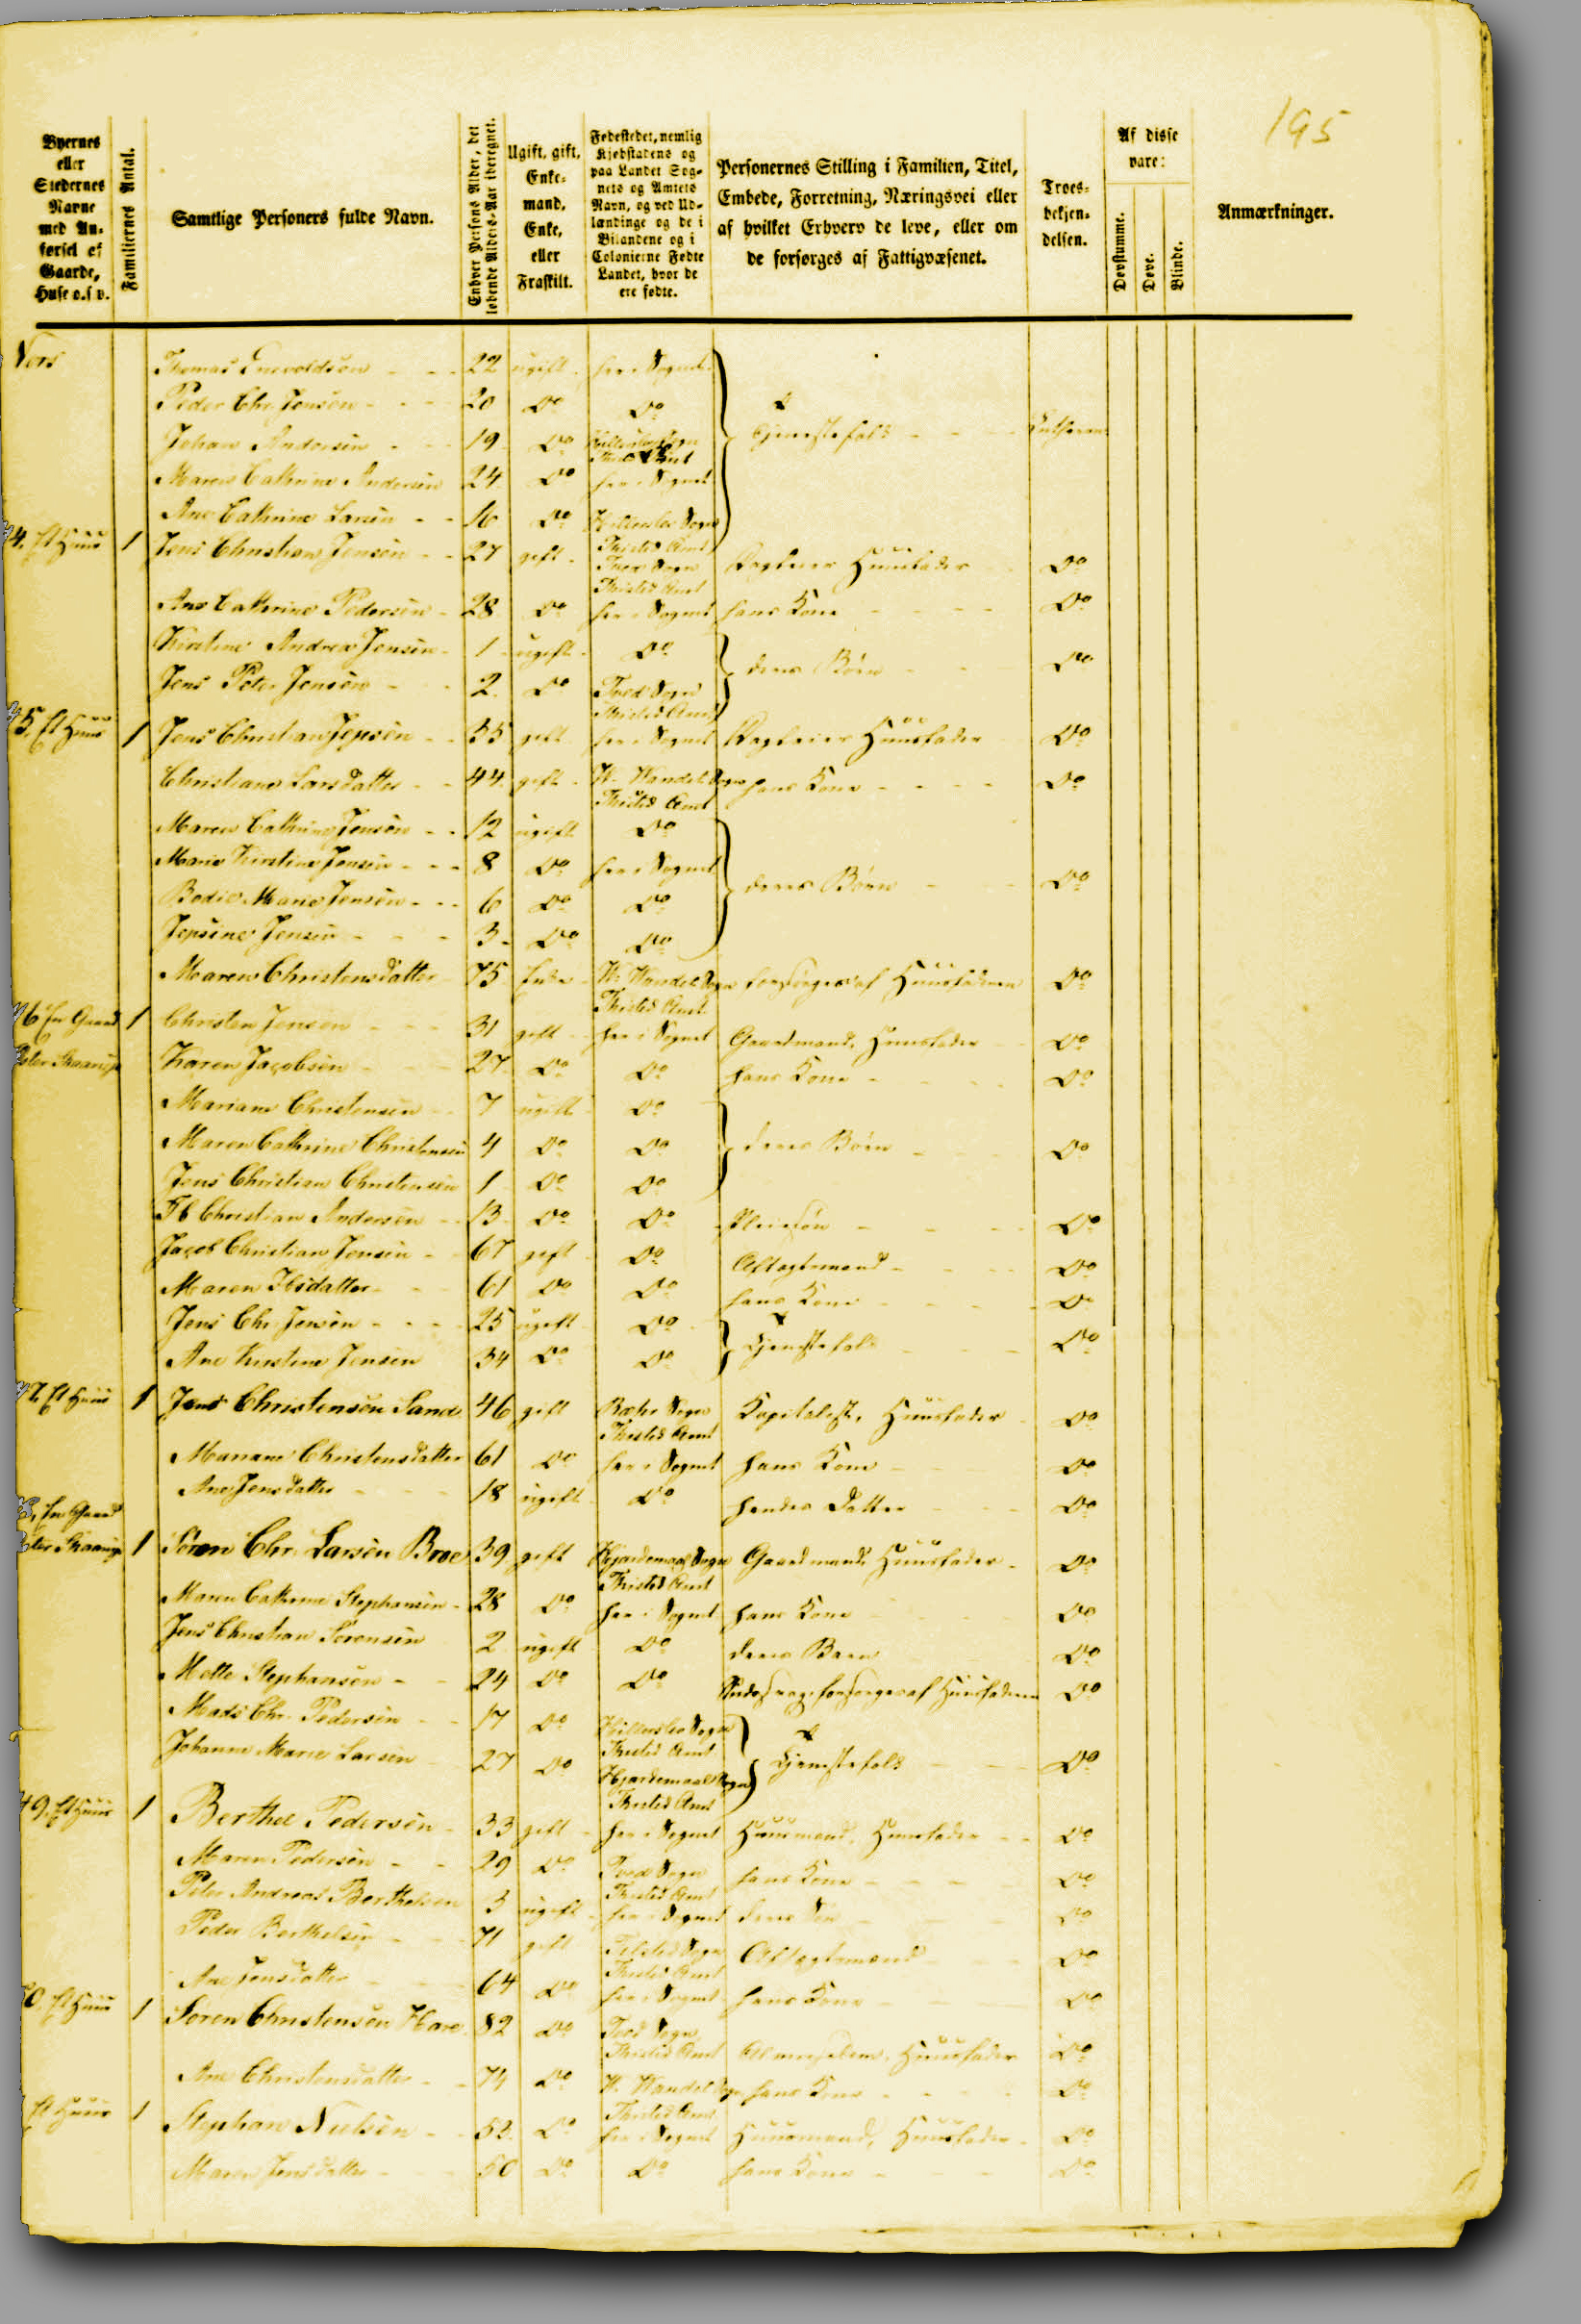 195
Byernes eller Stedernes Navne med Anførsel af Gaarde, Huse o.s.v.
Familiernes Antal.
Samtlige Personers fulde Navn.
Enhver Persons Alder, det løbende Alders-Aar iberegnet.
Ugift, gift, Enkemand, Enke, eller Fraskilt.
Fødestedet, nemlig Kjøbstadens og paa Landet Sognets og Amtets Navn, og ved Udlændinge og de i Bilandene og i Colonierne Fødte Landet, hvor de ere fødte.
Personernes Stilling i Familien, Titel, Embede, Forretning, Næringsvei eller af hvilket Erhverv de leve, eller om de forsørges af Fattigvæsenet.
Troesbekjendelsen.
Af disse vare:
Døvstumme.
Døve.
Blinde.
Anmærkninger.
Vors Thomas Enevoldsen 22 ugift her i Sognet
Peder Chr. Jensen 20 Do Do
Johan Andersen 19 Do Hillerslev Sogn Thisted Amt Tjenestefolk Luthersk
Maren Cathrine Andersen 24 Do her i Sognet
Ane Cathrine Larsen 16 Do Hillerslev Sogn Thisted Amt
4. Et Huus 1 Jens Christian Jensen 27 gift Sogn Thisted Amt Dagleier Huusfader Do
Ane Cathrine Pedersen 28 Do her i Sognet hans Kone Do
Kirstine Andrea Jensen 1 ugift Do
Jens Peter Jensen 2 Do Tved Sogn Thisted Amt deres Børn Do
5. Et Huus 1 Jens Christian Jepsen 35 gift her i Sognet Dagleier Huusfader Do
Christiane Larsdatter 44 gift W. Wandet Sogn Thisted Amt hans Kone Do
Maren Cathrine Jensen 12 ugift Do
Marie Kirstine Jensen 8 Do her i Sognet
Bodil Marie Jensen 6 Do Do deres Børn Do
Jepsine Jensen 3 Do Do
Maren Christensdatter 75 Enke W. Wandet Sogn Thisted Amt forsørges af Huusfaderen Do
6 En Gaard 1 Christen Jensen 31 gift her i Sognet Gaardmand, Huusfader Do
Skaarup Karen Jacobsen 27 Do Do hans Kone Do
Mariane Christensen 7 ugift Do
Maren Cathrine Christensen 4 Do Do deres Børn Do
Jens Christian Christensen 1 Do Do
Ib Christian Andersen 13 Do Do Pleiesøn Do
Jacob Christian Jensen 67 gift Do Aftægtsmand Do
Maren Ibsdatter 61 Do Do hans Kone Do
Jens Chr. Jensen 25 ugift Do
Ane Kirstine Jensen 34 Do Do Tjenestefolk Do
7. Et Huus 1 Jens Christensen Sand 46 gift Ræhr Sogn Thisted Amt Kapitalist, Huusfader Do
Mariane Christensdatter 61 Do her i Sognet hans Kone Do
Ane Jensdatter 18 ugift Do hendes Datter Do
En Gaard
Skaarup 1 Søren Chr. Larsen Broe 39 gift Hjardemaal Sogn Thisted Amt Gaardmand, Huusfader Do
Maren Cathrine Stephansen 28 Do her i Sognet hans Kone Do
Jens Christian Sørensen 2 ugift Do deres Barn Do
Mette Stephansen 24 Do Do forsørges af Huusfaderen Do
Mads Chr. Pedersen 17 Do Hillerslev Sogn Thisted Amt
Johanne Marie Larsen 27 Do Hjardemaal Sogn Thisted Amt Tjenestefolk Do
49. Et Huus 1 Berthel Pedersen 33 gift her i Sognet Huusmand, Huusfader Do
Maren Pedersen 29 Do Tved Sogn Thisted Amt hans Kone Do
Peter Andreas Berthelsen 3 ugift her i Sognet deres Søn Do
Peder Berthelsen 71 gift Sogn Thisted Amt Aftægtsmand Do
Ane Jensdatter 64 Do her i Sognet hans Kone Do
0. Et Huus 1 Søren Christensen Hare 82 Do Tved Sogn Thisted Amt Almisselem, Huusfader Do
Ane Christensdatter 74 Do W. Wandet Sogn Thisted Amt hans Kone Do
Et Huus 1 Stephan Nielsen 52 Do her i Sognet Huusmand, Huusfader Do
Maren Jensdatter 50 Do Do hans Kone Do